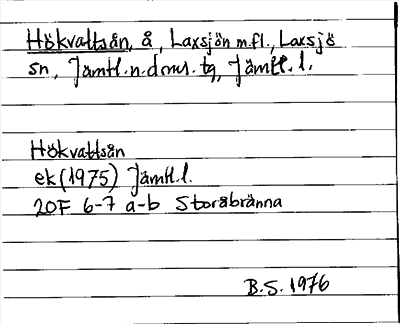 Hökvattsån, å, Laxsjön m.fl., Laxsjö
sn, Jämtl. n. doms. tg, Jämtl. l.
Hökvattsån
ek (1975) Jämtl. l.
20F 6-7 a-b Storåbränna
B.S. 1976